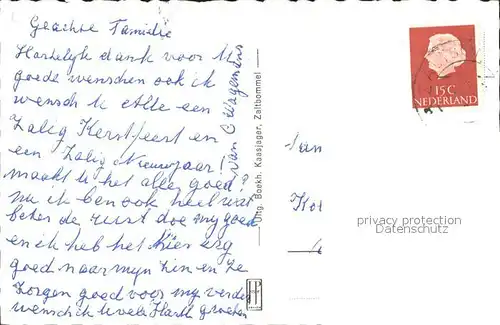 Geachte Familie
Hartelijk dank voor U
goede wenschen ook ik
wensch U Alle een
Zalig Kerstfeest en
een Zalig Nieuwjaar!
maakt U het alles goed?
Nu ik ben ook heel wat
beter de rust doe my goed
en ik heb het hier erg
goed naar myn zin en Ze
Zorgen goed voor my verder
wensch ik U vele Hartl groeten
van C Wagemans
Uitg. Boekh. Kaasjager, Zaltbommel
15 C
NEDERLAND
privacy protection
Datenschutz